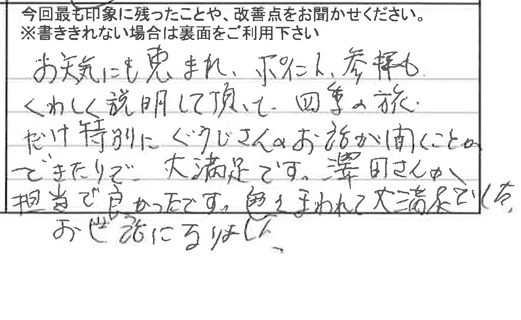 今回最も印象に残ったことや、改善点をお聞かせください。
※書ききれない場合は裏面をご利用下さい
お天気にも恵まれ、ポイント、参拝も
くわしく説明して頂いて、四季の旅
だけ特別にぐうじさんのお話が聞くことが
できたりで、大満足です。澤田さんが
担当で良かったです。色々まわれて大満足でした。
お世話になりました